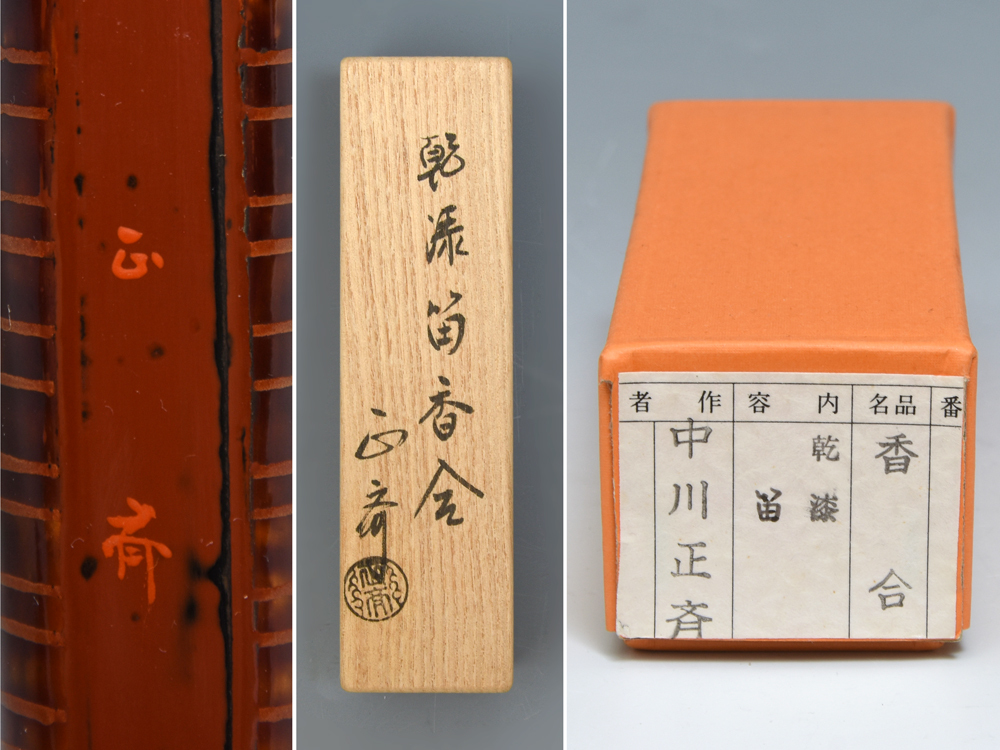 正斉
乾漆笛香合
正斉
番
品名
香合
内容
乾漆
笛
作者
中川正斉